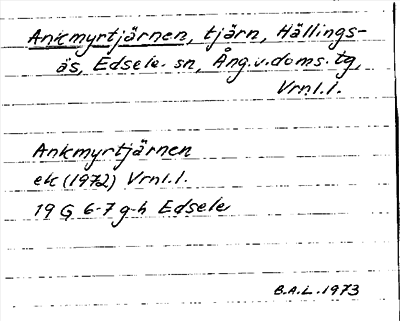 Ankmyrtjärnen, tjärn, Hällings-
ås, Edsele sn, Ång.v.doms.tg,
Vrnl.l.
Ankmyrtjärnen
ek (1972) Vrnl.l.
19 G 6-7 g-h Edsele
B.A.L. 1973